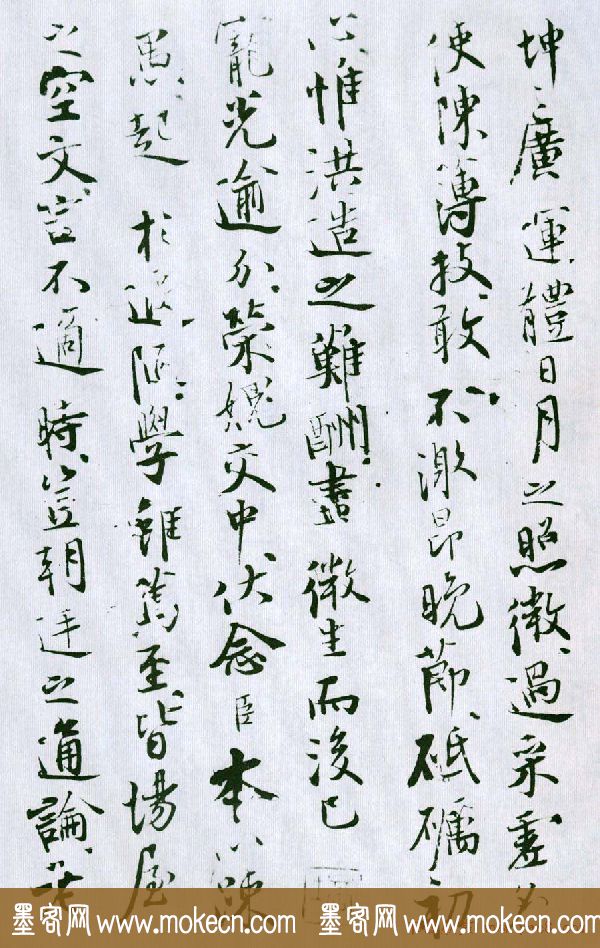 坤之廣運體日月之照微過采虛名
使陳薄技敢不激昂晚節砥礪初
心惟洪造之難酬盡微生而後已
寵光逾分榮媿交中伏念臣本以疎
愚起於遐陋學雖篤至皆場屋
之空文言不適時豈朝廷之通論
墨客网 www.mokecn.com 墨客网 www.mokecn.com